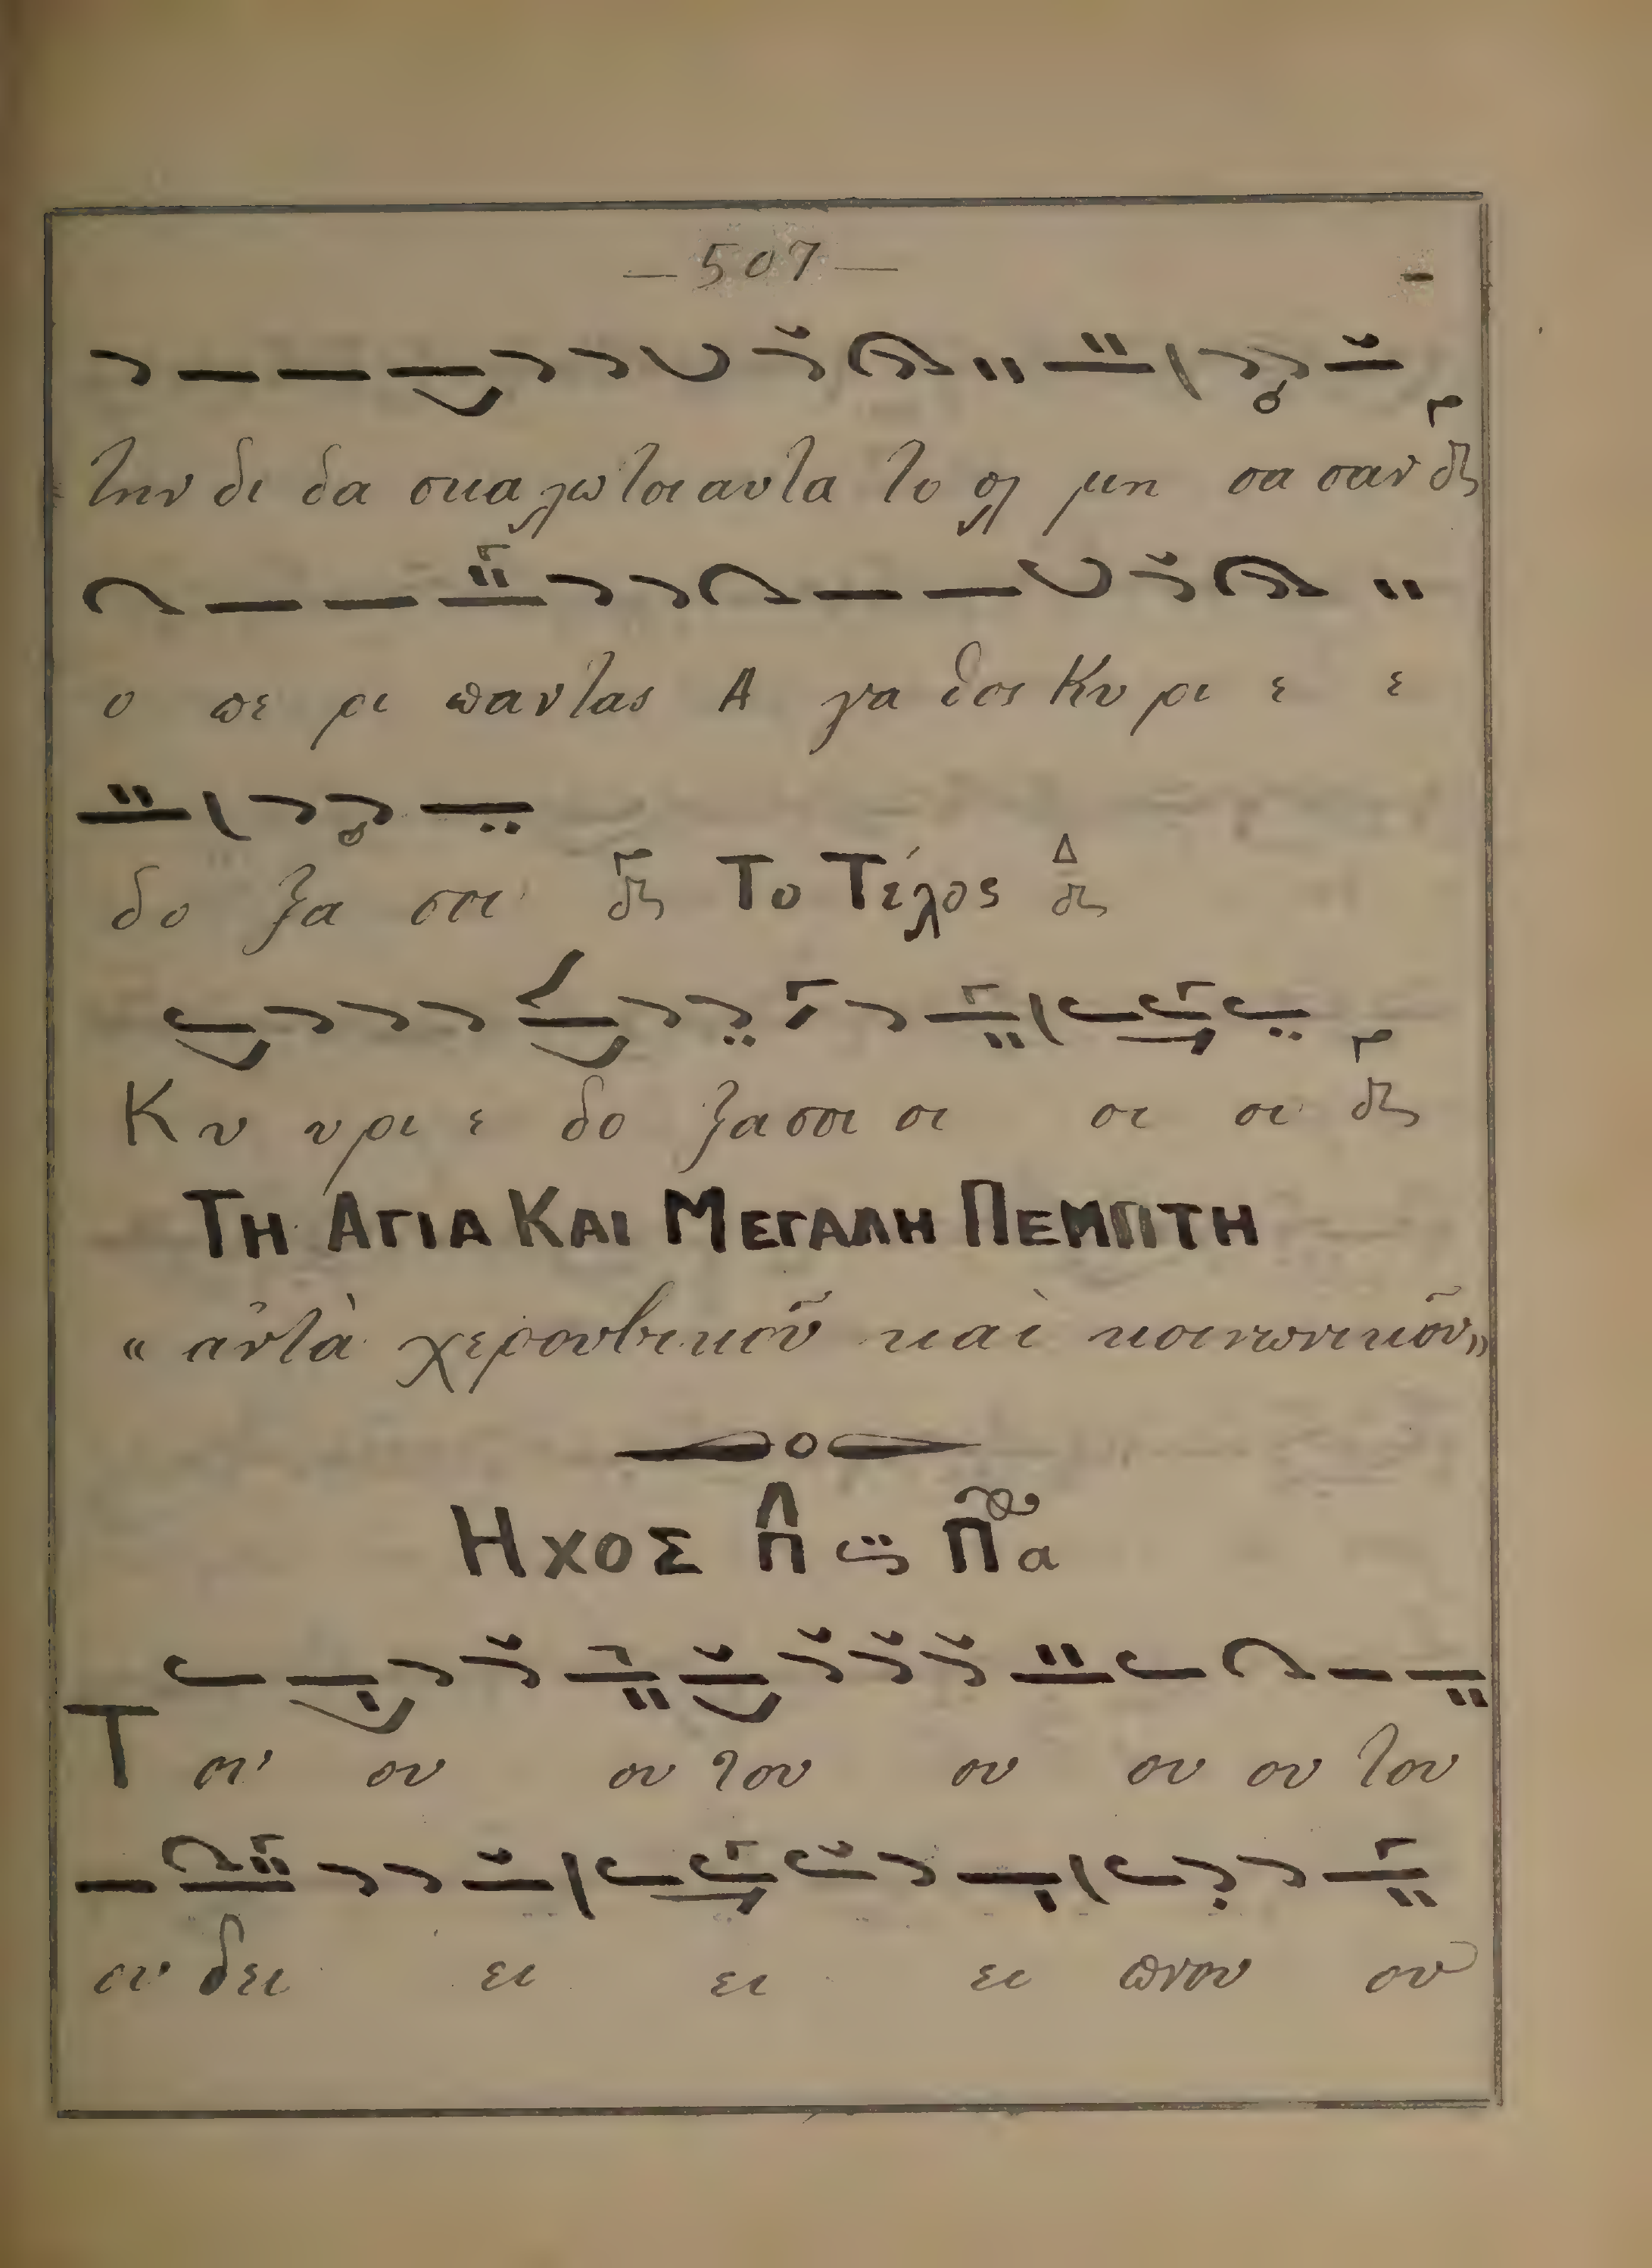 — 507 —
την δι δα σκα λω τοι αυτα το ολ μη σα σαν
ο πε ρι παντας Α γα θος Κυ ρι ε ε
δο ξα σοι Το Τέλος Δ
Κυ υ ρι ε δο ξα σοι οι οι οι
ΤΗ ΑΓΙΑ ΚΑΙ ΜΕΓΑΛΗ ΠΕΜΠΤΗ
« ἀντὰ χερουβικοῦ καὶ κοινωνικοῦ »
ΗΧΟΣ Πα
Του ου ου του ου ου ου του
ου δει ει ει ει πνου ου